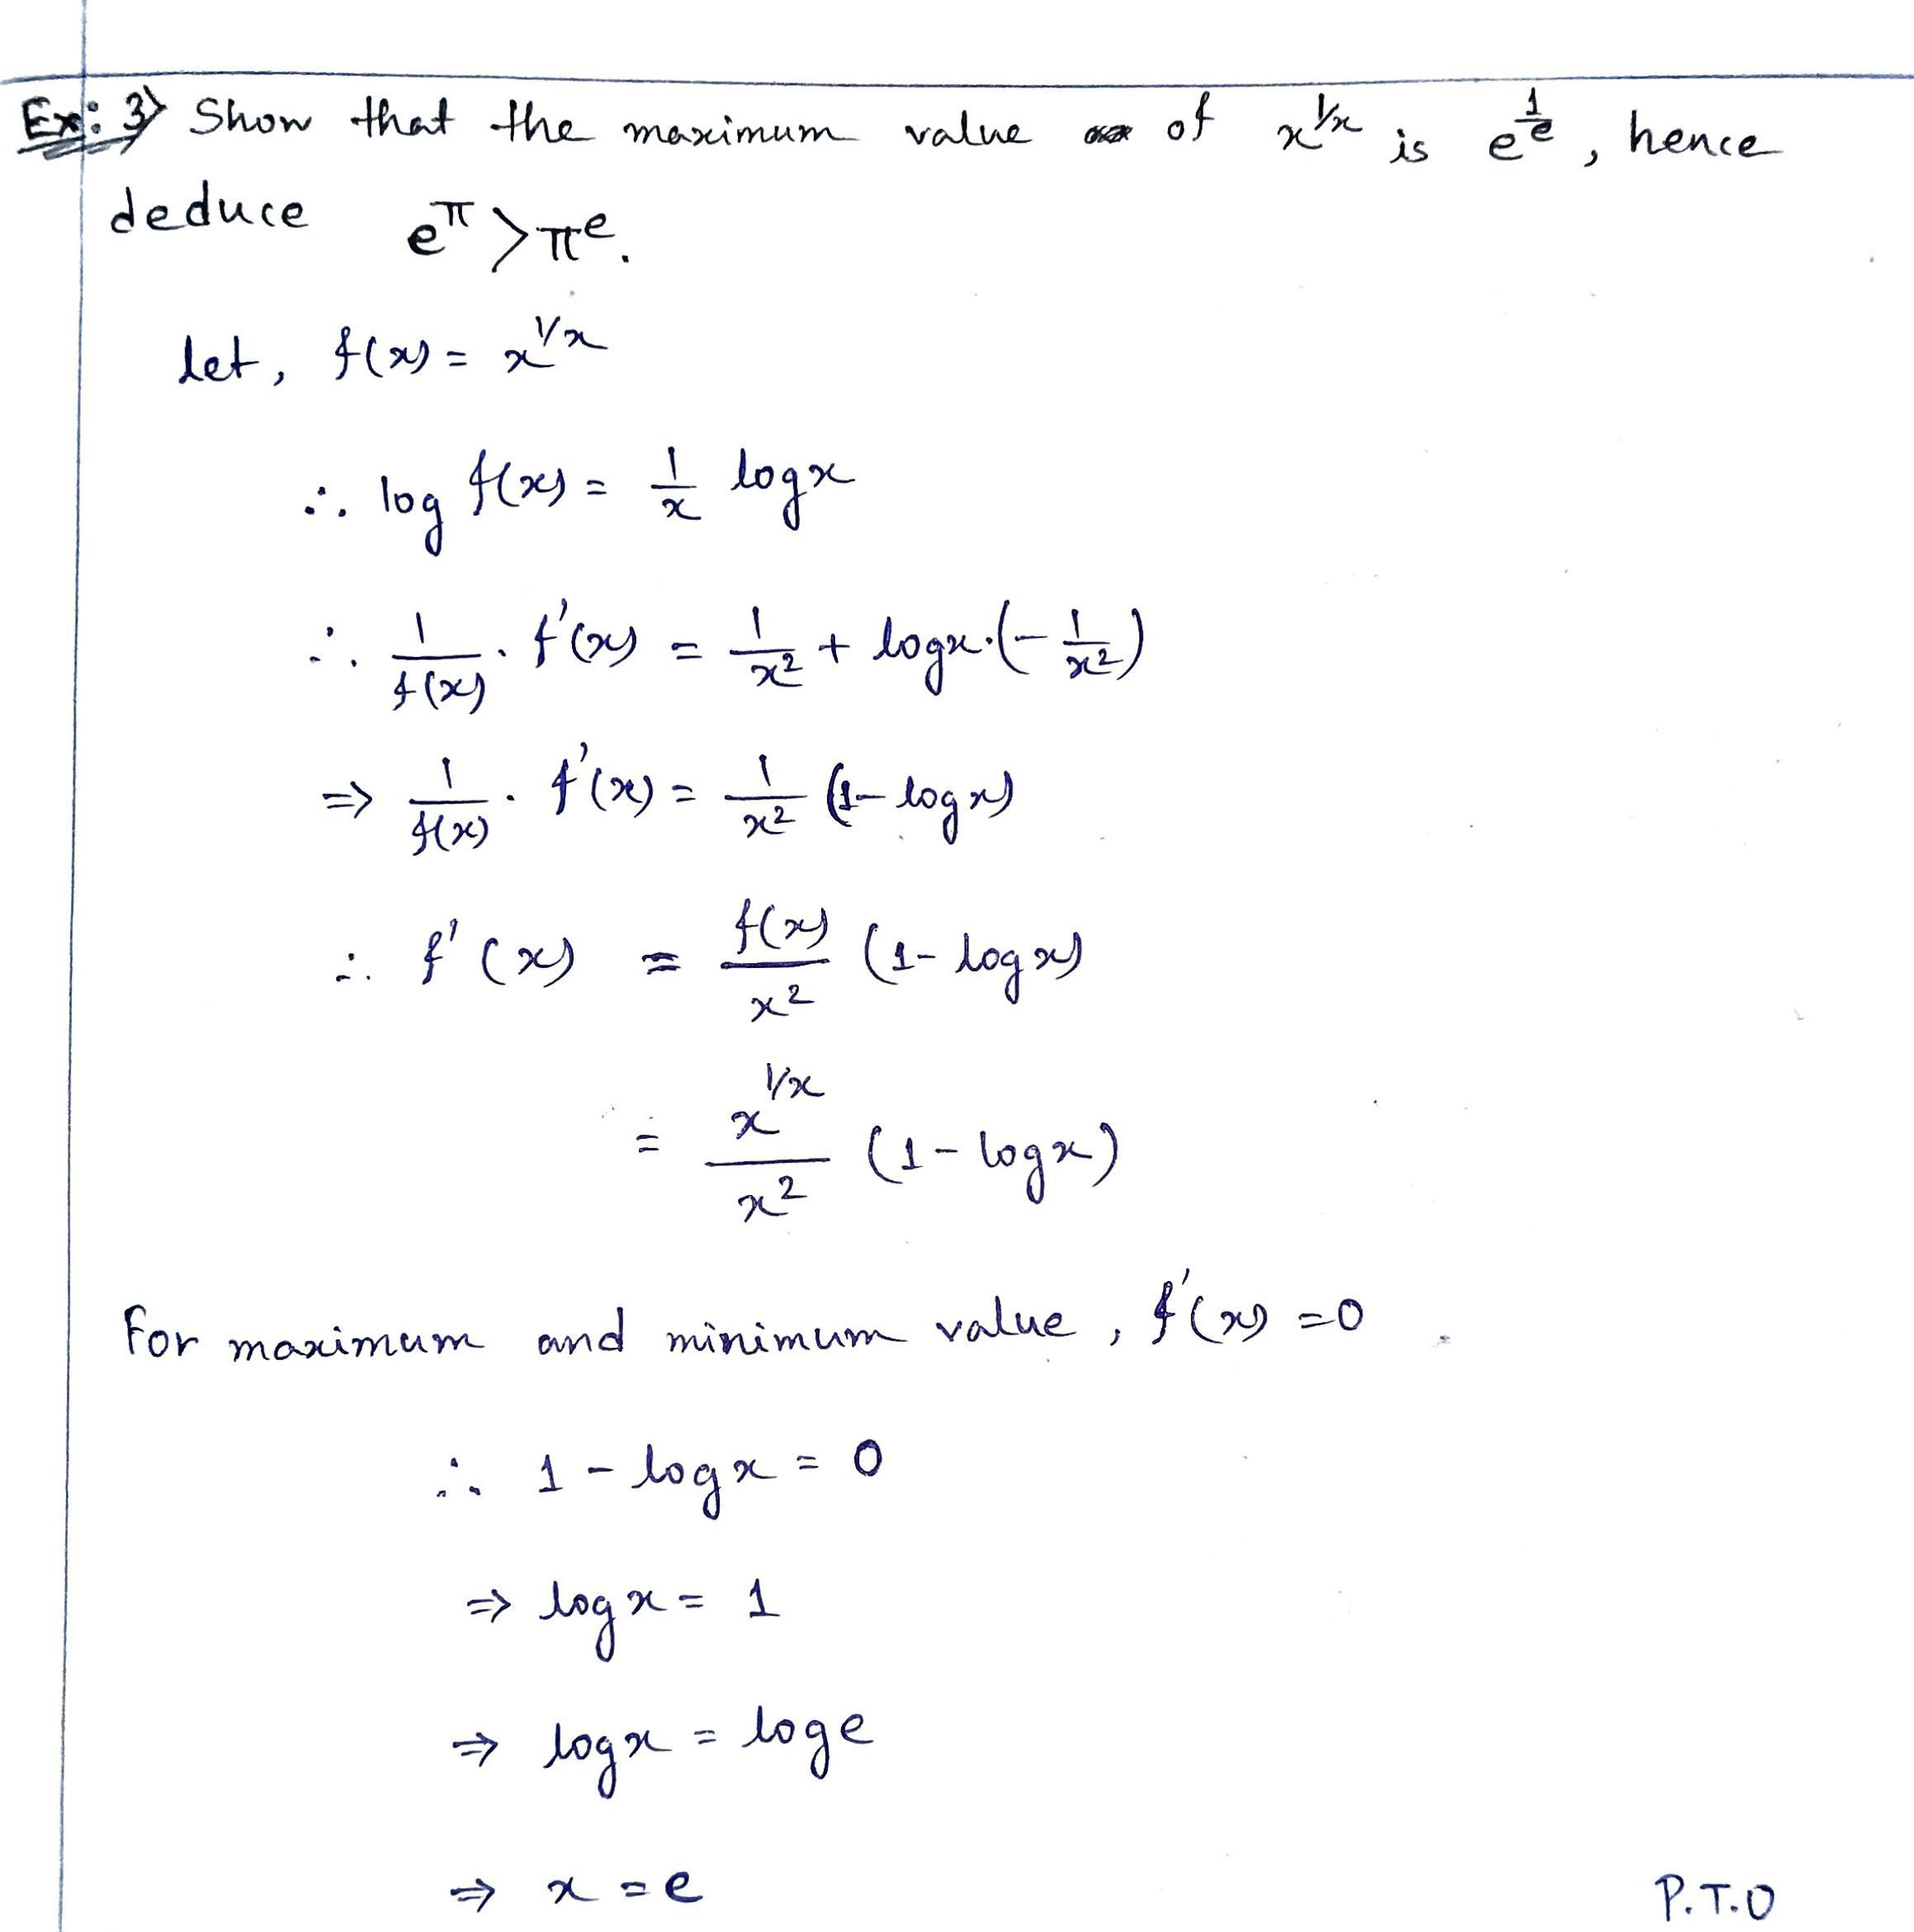 Ex: 3) Show that the maximum value of x^{1/x} is e^{1/e}, hence
deduce e^π > π^e.
let, f(x) = x^{1/x}
∴ log f(x) = 1/x log x
∴ 1/f(x) · f'(x) = 1/x² + log x·(- 1/x²)
⇒ 1/f(x) · f'(x) = 1/x² (1- log x)
∴ f'(x) = f(x)/x² (1- log x)
= x^{1/x}/x² (1- log x)
For maximum and minimum value, f'(x) = 0
∴ 1 - log x = 0
⇒ log x = 1
⇒ log x = log e
⇒ x = e
P.T.O